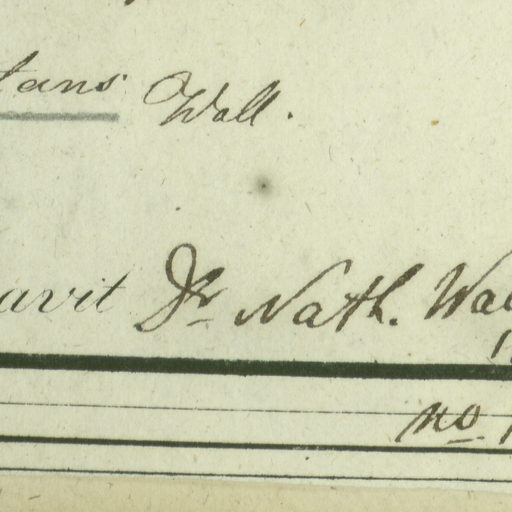 tans Wall.
avit Dr Nath. Wal
no